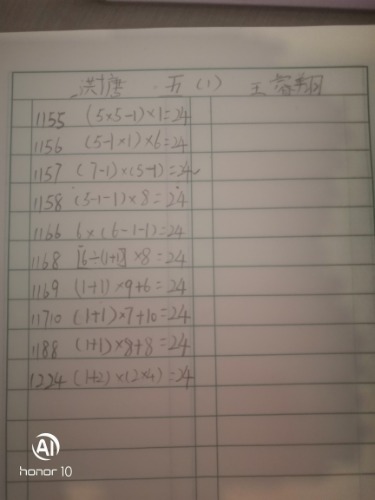 洪塘 五(1) 王睿翔
1155 (5×5-1)×1=24
1156 (5-1×1)×6=24
1157 (7-1)×(5-1)=24
1158 (5-1-1)×8=24
1166 6×(6-1-1)=24
1168 [6÷(1+1)]×8=24
1169 (1+1)×9+6=24
11710 (1+1)×7+10=24
1188 (1+1)×8+8=24
1224 (1+2)×(2×4)=24
AI
honor 10